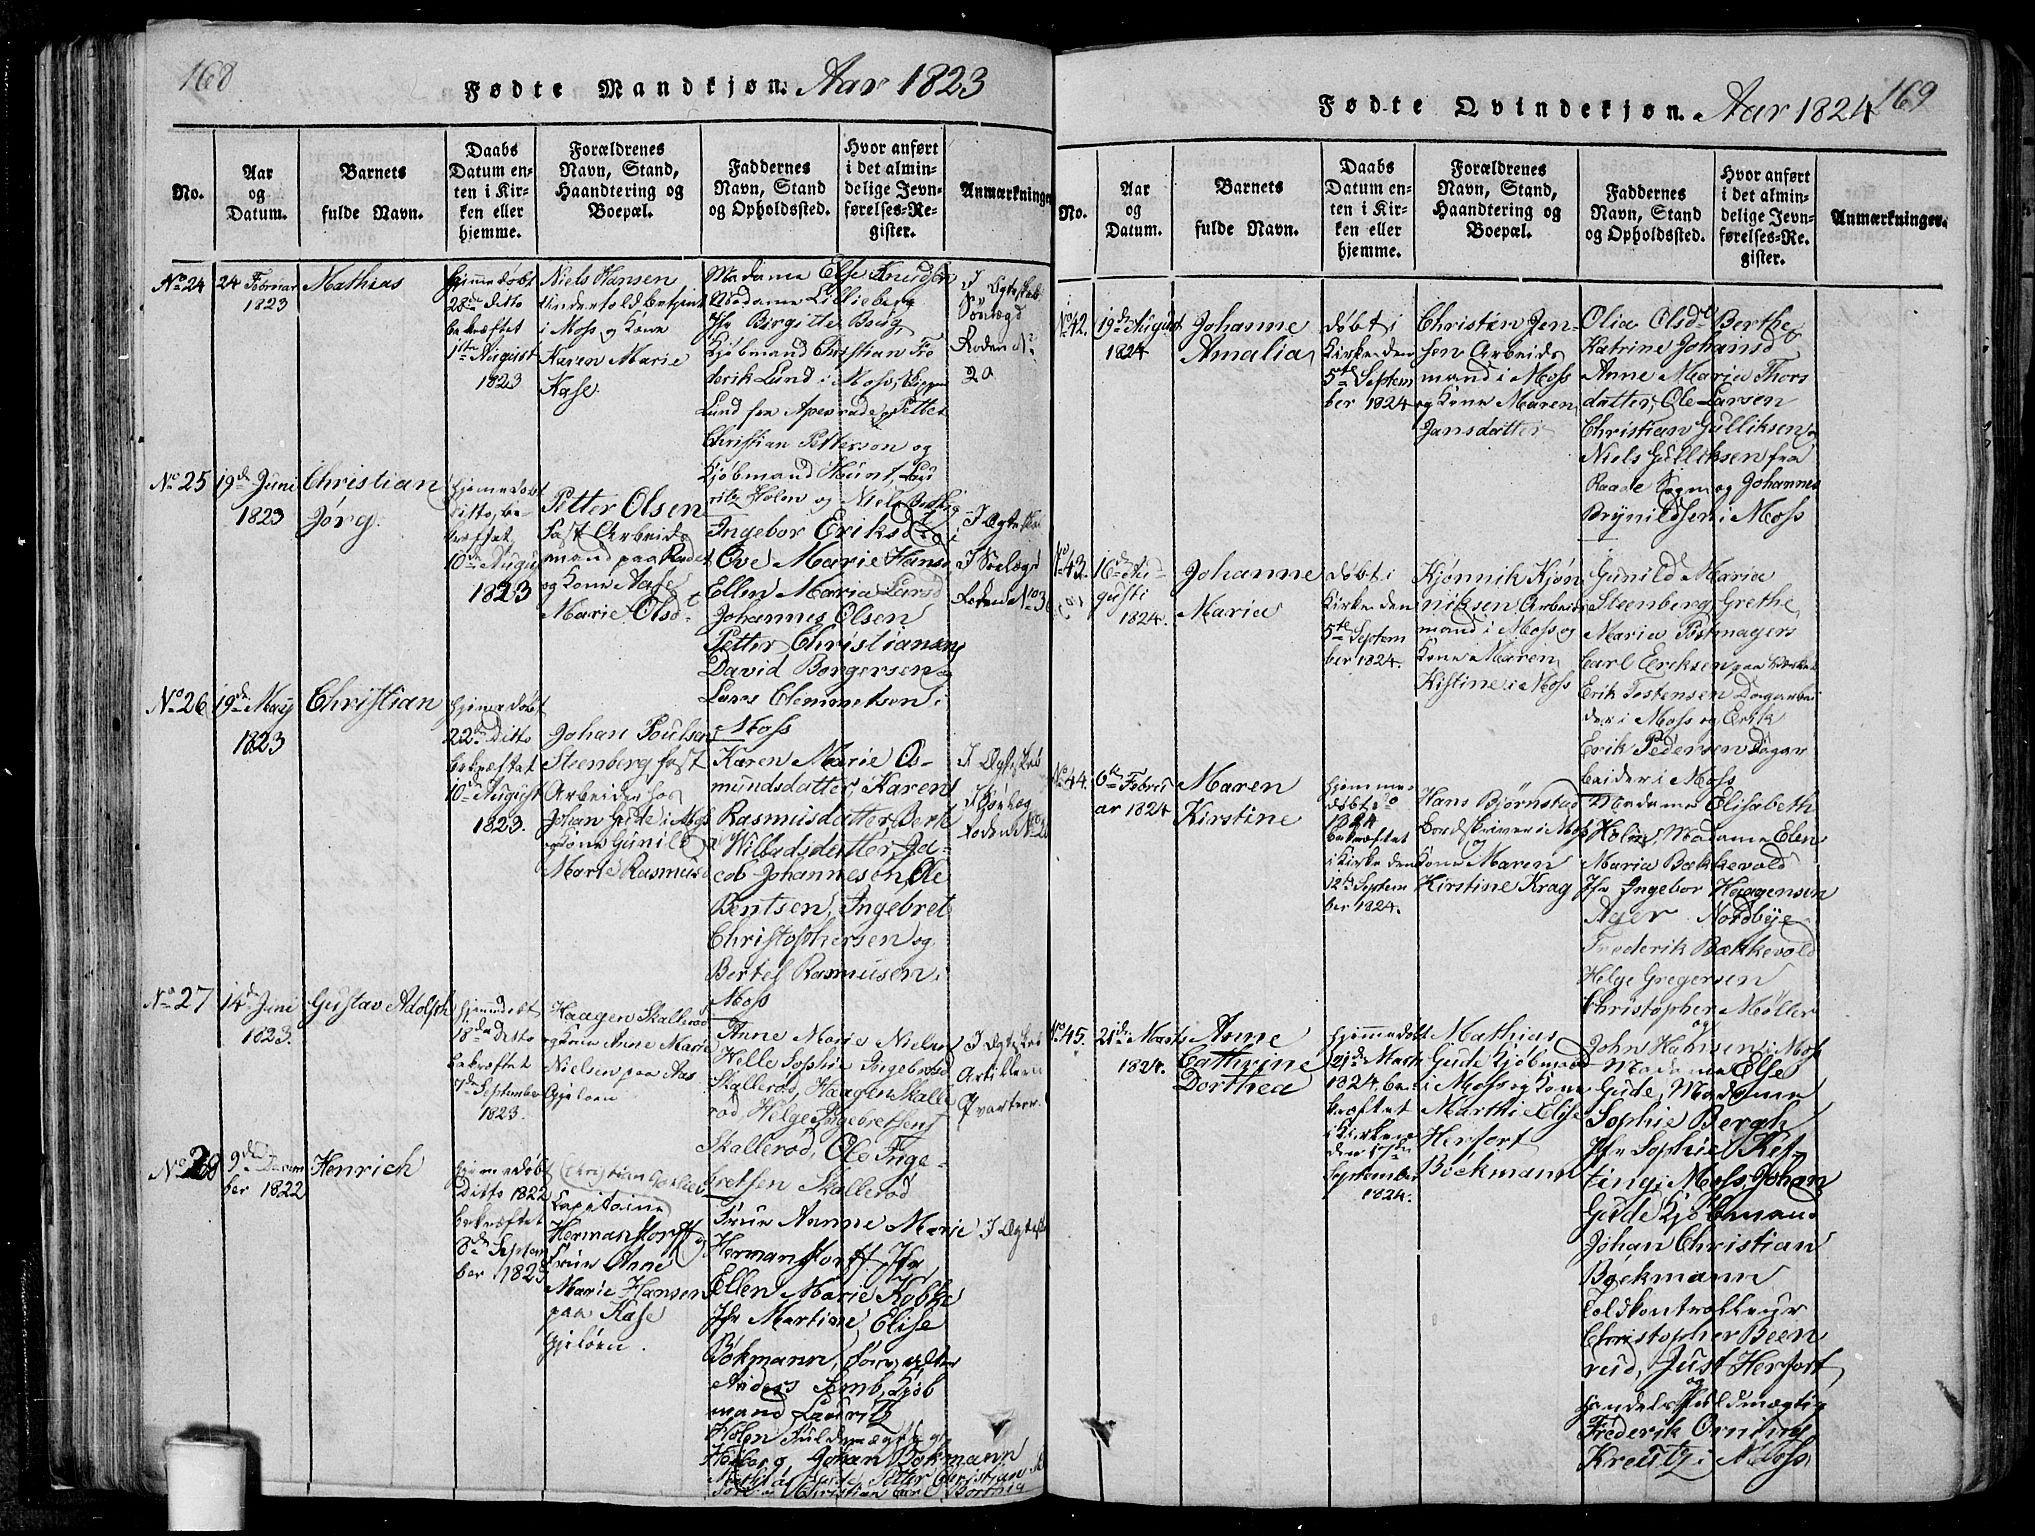 168
Fødte Mandkjøn. Aar 1823
No.
Aar
og
Datum.
Barnets
fulde Navn.
Daabs
Datum en-
ten i Kir-
ken eller
hjemme.
Forældrenes
Navn, Stand,
Haandtering og
Boepæl.
Faddernes
Navn, Stand
og Opholdssted.
Hvor anført
i det almin-
delige Jevn-
førelses-Re-
gister.
Anmærkninger
No 24
24 Februar
1823
Mathias
hjemmedøbt
28de ditto
bekræftet
1ste August
1823
Niels Hansen
Undertoldbetjent
i Moss og Kone
Karen Marie
Kase.
Madame Else Knudsen
Madame Lillieberg
Jfr Birgitte Brüg
Kjøbmand Christian Fre
derik Lund i Moss,
Lund fra Apenrade, Petter
Christian Petterson og
Kjøbmand Hount, Lau
ritz Holen og Niels
I Ægteskab
Sønlægd
Roden No
20
No 25
19de Juni
1823
Christian
Jørg.
hjemmedøbt
ditto, be-
kræftet
10de August
1823
Petter Olsen
fast Arbeids
mand paa
og Kone Aase
Marie Olsd
Ingebor Eriksd
Ove Marie Hansd
Ellen Maria Larsd
Johannes Olsen
Petter Christiansen
David Borgersen og
Lars Clemmetsen i
Moss
I Ægtesk
I Sønlægd
Roden No 3
No 26
19de Maij
1823
Christian
hjemmedøbt
22de Ditto
bekræftet
10de August
1823.
Johan Poulsen
Steenberg fast
Arbeider hos
Johan Gude i Moss
og Kone Gunild
Marie Rasmusd
Karen Marie Os-
mundsdatter, Karen
Rasmusdatter, Berte
Wilbadsdatter, Ja-
cob Johannesen, Ole
Bentsen, Ingebret
Christophersen og
Bertel Rasmusen i
Moss
I Ægteskab
I Sønlæg
Roden No 20
No 27
14de Juni
1823.
Gustav Adolph
hjemmedøbt
18de Ditto
bekræftet
7de September
1823.
Haagen Skallerød
og Kone Anne Marie
Nielsen paa Aas
Gjeløen
Anne Marie Nielsen
Helle Sophie Ingebrød
Skallerød, Haagen Skalle
rød, Helge Ingebretsen
Skallerød, Ole Inge-
bretsen Skallerød
I Ægteskab
Artilleri
Qvarteer.
No 28
9de Decem
ber 1822
Henrich
hjemmedøbt
Ditto 1822
bekræftet
8de Septem
ber 1823
Christian
Capitaine
Hermanstorff og
Frue Anne
Marie Hansen
paa Kase
Gjeløen.
Frue Anne Marie
Hermanstorff, Jfr
Ellen Marie Købke
Jfr Martine Elise
Bokmann, Forvalter
Anders Semb, Kjøb
mand Lauritz
Holen Fuldmægtig
Høeborg, Johan Bokmann
Mathias Gude, Petter Christian
Christian Carl
I Ægtesk
169
Fødte Qvindekjøn. Aar 1824
No.
Aar
og
Datum.
Barnets
fulde Navn.
Daabs
Datum en-
ten i Kir-
ken eller
hjemme.
Forældrenes
Navn, Stand,
Haandtering og
Boepæl.
Faddernes
Navn, Stand
og Opholdssted.
Hvor anført
i det almin-
delige Jevn-
førelses-Re-
gister.
Anmærkninger.
No 42.
19de August
1824
Johanne
Amalia
Døbt i
Kirke den
5te Septem
ber 1824
Christen Jen-
sen Arbeids
mand i Moss
og Kone Maren
Jansdatter
Olia Olsdr Berthe
Katrine Johansd
Anne Maria Thors
datter, Ole Larsen
Christian Gulliksen
Niels Gulliksen fra
Raade Sogn og Johannes
Brynildsen i Moss
No 43.
16de Au-
gusti
1824.
Johanne
Maria
Døbt i
Kirke den
5te Septem
ber 1824.
Kjønnik Kjøn
niksen Arbeids
mand i Moss og
Kone Maren
Kistine i Moss
Gunild Maria
Steenberg Grethe
Maria Postmagers
Carl Ericksen paa
Erik Tostensen Dagarbei
der i Moss og Erik
Erik Pedersen Dagar
beider i Moss
No 44.
6te Febru
ar 1824
Maren
Kirstine
hjemme-
døbt
1824
bekræftet
i Kirke den
12te Septem
ber 1824.
Hans Bjørnstad
Bordskriver i Moss
og
Kone Maren
Kirstine Krag
Madame Elisabeth
Holen, Madame Elen
Maria Bækkevold
Jfr Ingebor Haagensen
Ager Nordbye
Frederik Bækkevold
Helge Gregersen
Christopher Møller
og
John Hansen i Moss
No 45.
21de Marts
1824.
Anne
Cathrine
Dorthea
hjemmedøbt
21de Marts
1824, be-
kræftet
i Kirken
den 17de
September
1824.
Mathias
Gude Kjøbmand
i Moss og Kone
Marthe Elise
Herfort
Boekmann
Madame Else
Gude, Madame
Sophie Bergh
Jfr Sophie Ket-
ting i Moss, Johan
Gude Kjøbmand
Johan Christian
Boekmann
Toldkontrolleur
Christopher Been
rud, Just Herfort
og
Handels Fuldmægtig
Frederik Orning
Kreutz i Moss